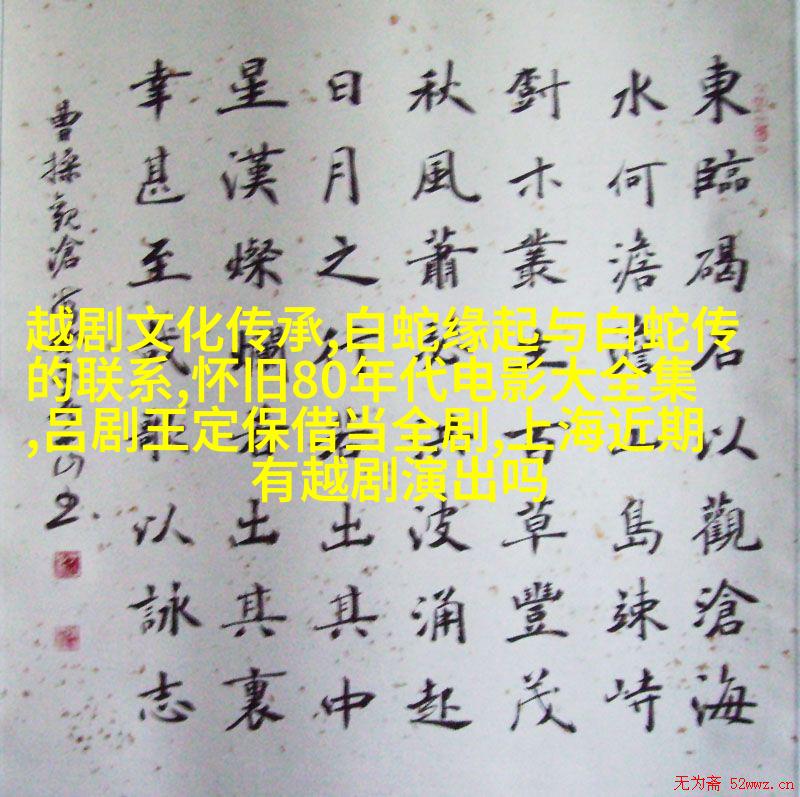 越剧文化传承,白蛇缘起与白蛇传
的联系,怀旧80年代电影大全集
,吕剧王定保借当全剧,上海近期
有越剧演出吗
東臨碣石以觀滄海
水何澹澹山島竦峙
木叢生百草豐茂
秋風蕭瑟洪波涌起
日月之行若出其中
星漢燦爛若出其裏
幸甚至哉歌以詠志
曹操觀滄
无为斋 52wwz.cn